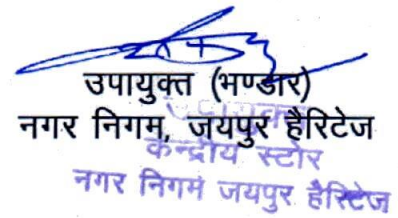 उपायुक्त (भण्डार)
नगर निगम, जयपुर हैरिटेज
उपायुक्त
केन्द्रीय स्टोर
नगर निगम जयपुर हैरिटेज